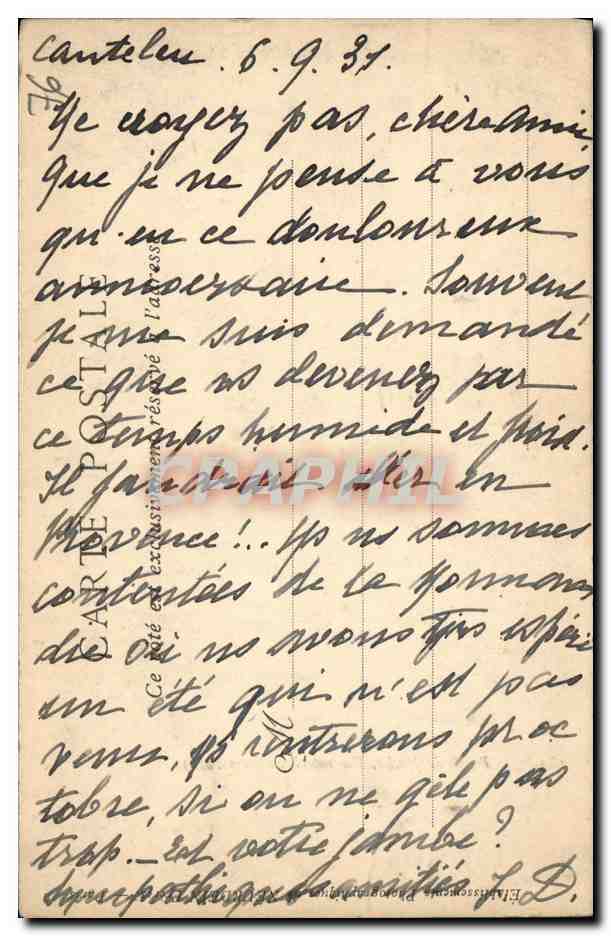 Canteleu. 6. 9. 31.
Ne croyez pas, chère Amie,
que je ne pense à vous
qu'en ce douloureux
anniversaire. Souvent
je me suis demandé
ce que vs devenez par
ce temps humide et froid.
Il faudrait aller en
Provence!.. Ns ns sommes
contentées de la Norman
die où ns avons tjrs espéré
un été qui n'est pas
venu, ns rentrerons pr oc
tobre, si on ne gèle pas
trop. _ Et votre jambe?
Sympathiques amitiés D.
CARTE POSTALE
Ce côté est exclusivement réservé à l'adresse
M
Établissements Photographiques
CPAPHIL